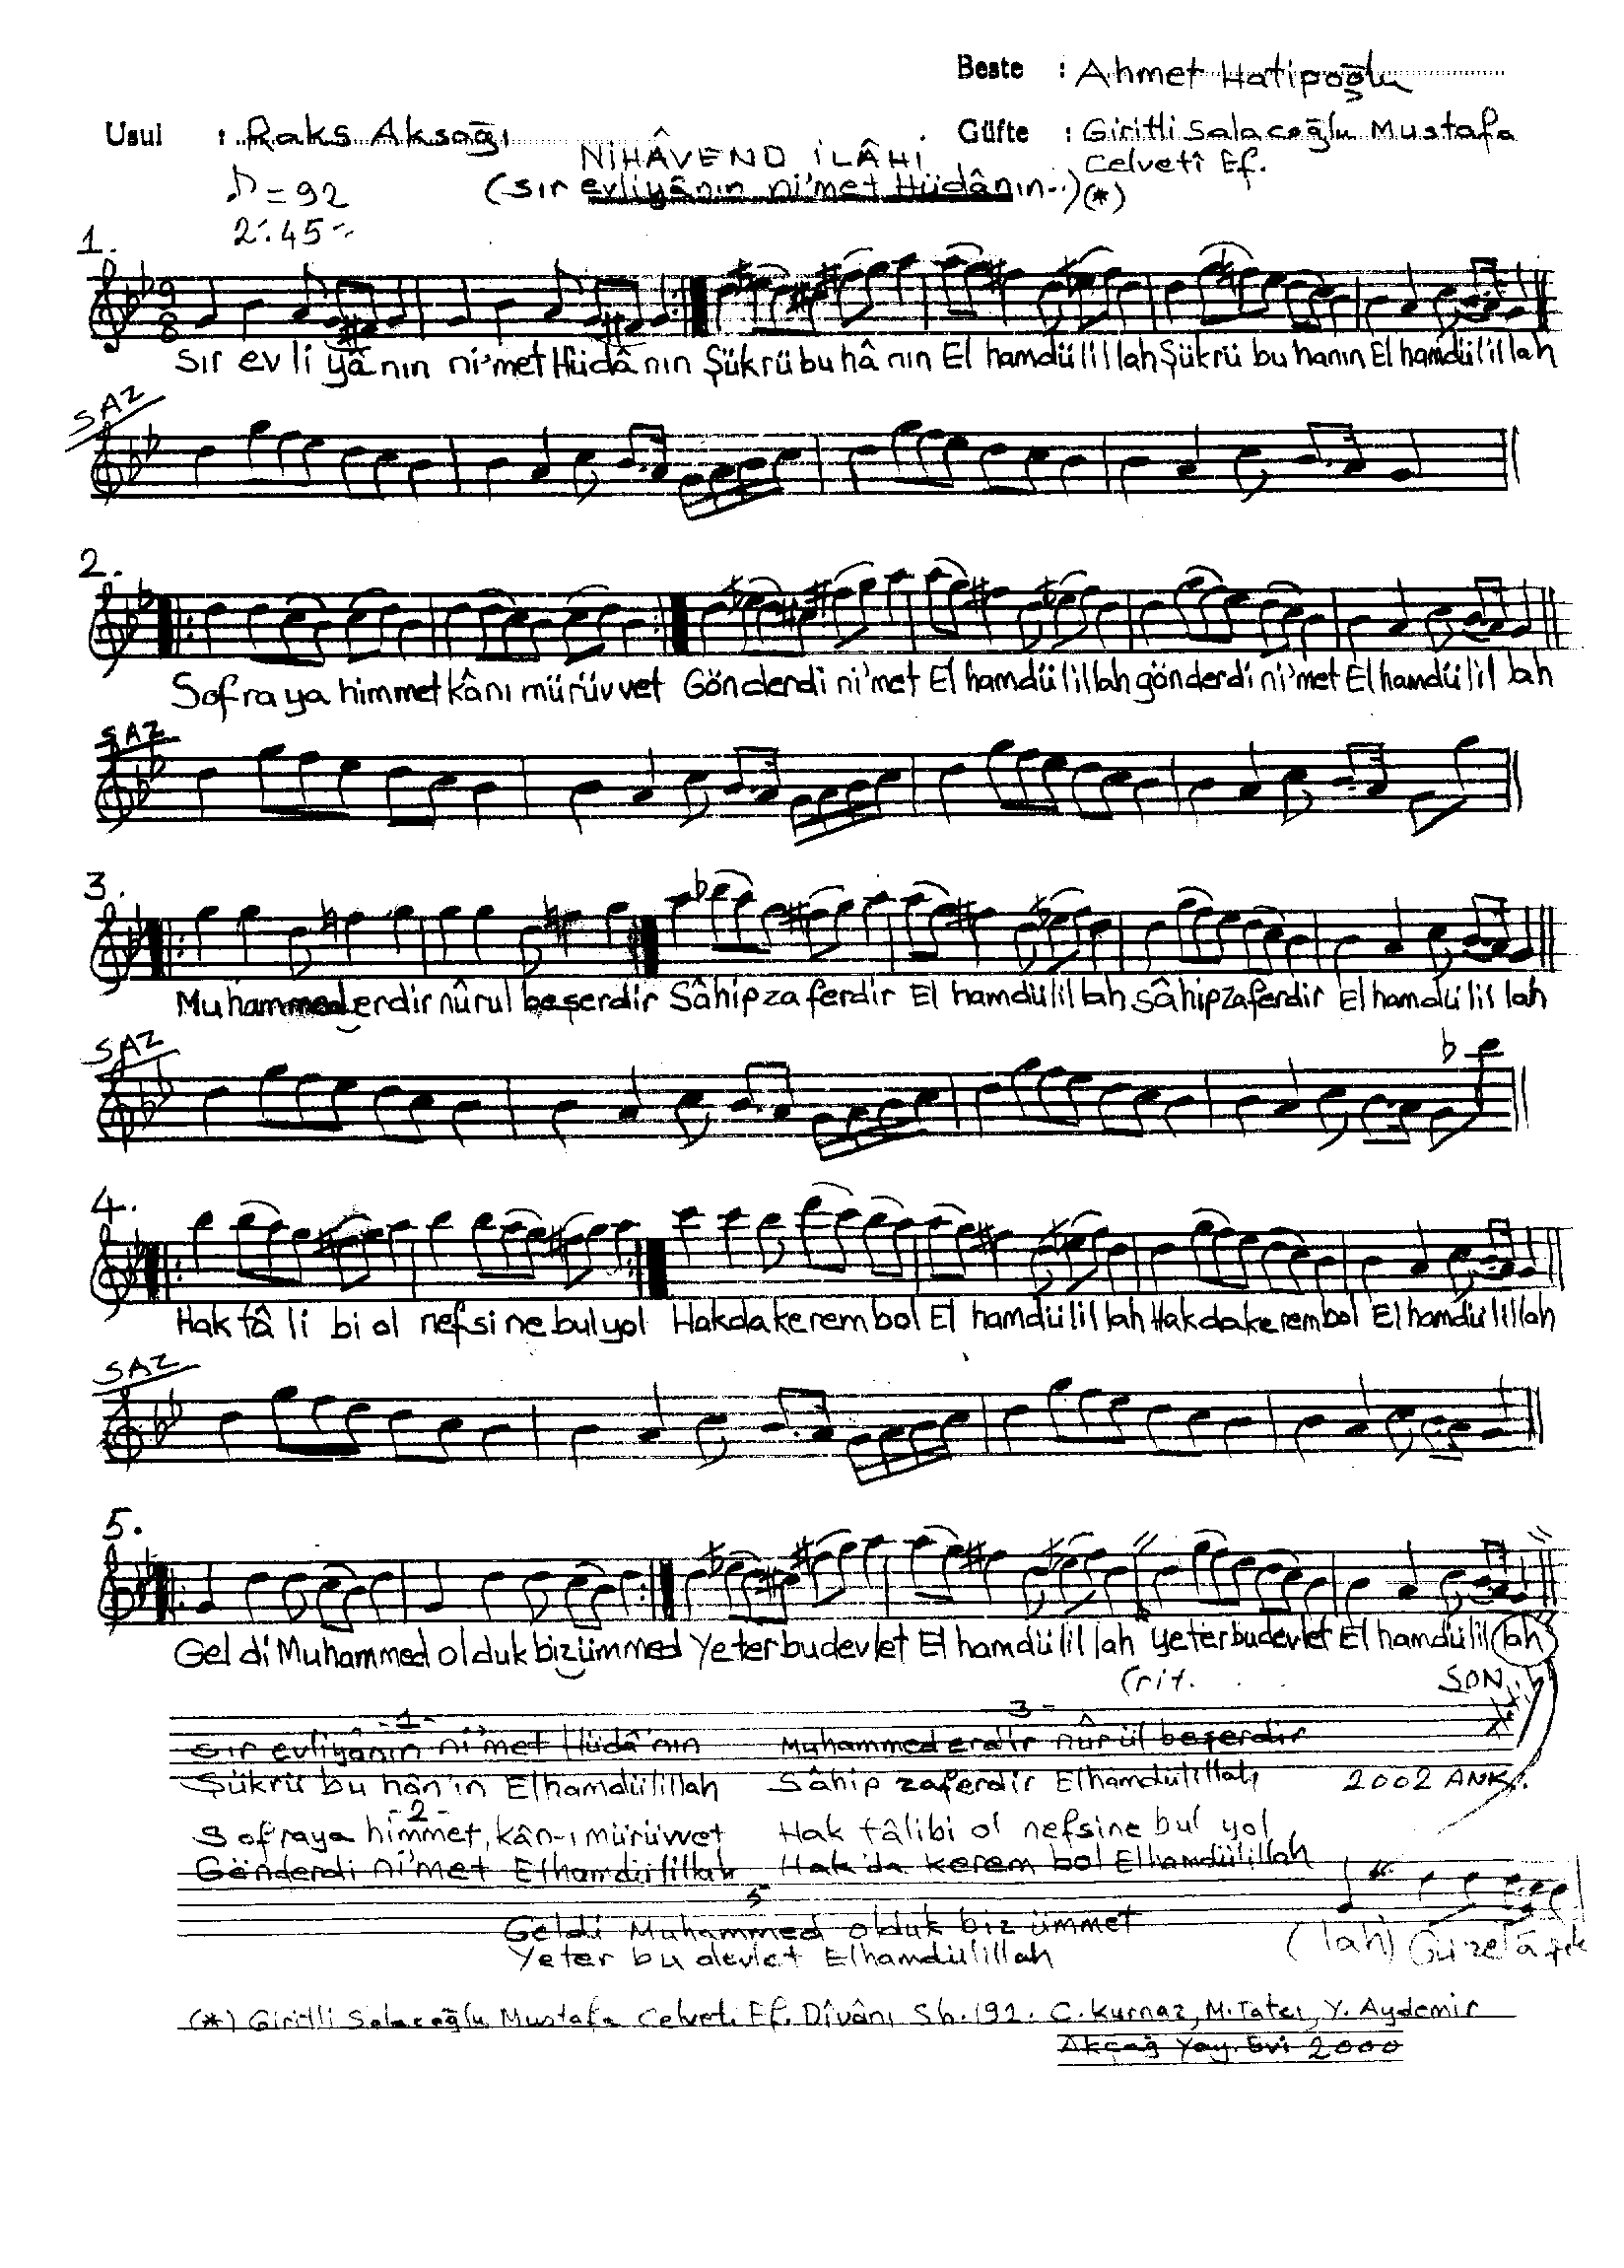 Beste : Ahmet Hatipoğlu
Usul : Raks Aksağı
Güfte : Giritli Salacoğlu Mustafa
Celvetî Ef.
NİHÂVEND İLÂHİ
♪ = 92
(sır evliyânın ni'met Hüdânın..) (*)
2'.45''
1.
9
8
Sır ev li yâ nın ni'met Hüdâ nın Şükrü bu hâ nın El hamdü lil lah Şükrü bu hanın El hamdü lil lah
SAZ
2.
Sof ra ya himmet kânı mürüv vet Gönderdi ni'met El hamdü lil lah gönderdi ni'met El hamdü lil lah
SAZ
3.
Muhammed erdir nûrul beşerdir Sâhip za ferdir El hamdü lil lah sâhip zaferdir El hamdü lil lah
SAZ
4.
Hak tâ li bi ol nefsi ne bul yol Hakda ke rem bol El hamdü lil lah Hakda ke rem bol El hamdü lil lah
SAZ
5.
Gel di Muhammed ol duk biz ümmed Ye ter bu devlet El hamdü lil lah yeter bu devlet El hamdü lil lah
(rit. . . .
SON
-1-
3-
Sır evliyânın ni'met Hüdâ'nın Muhammed erdir nûr ül beşerdir
Şükrü bu hân'ın Elhamdülillah Sâhip zaferdir Elhamdülillah
2002 ANK.
-2-
Sofraya himmet, kân-ı mürüvvet Hak tâlibi ol nefsine bul yol
Gönderdi ni'met Elhamdülillah Hak'da kerem bol Elhamdülillah
5
Geldi Muhammed olduk biz ümmet
(lah) Güzel âşık
Yeter bu devlet Elhamdülillah
(*) Giritli Salacoğlu Mustafa Celveti Ef. Dîvânı Sh. 192. C. Kurnaz, M. Tatcı, Y. Aydemir
Akçağ Yay. Evi 2000